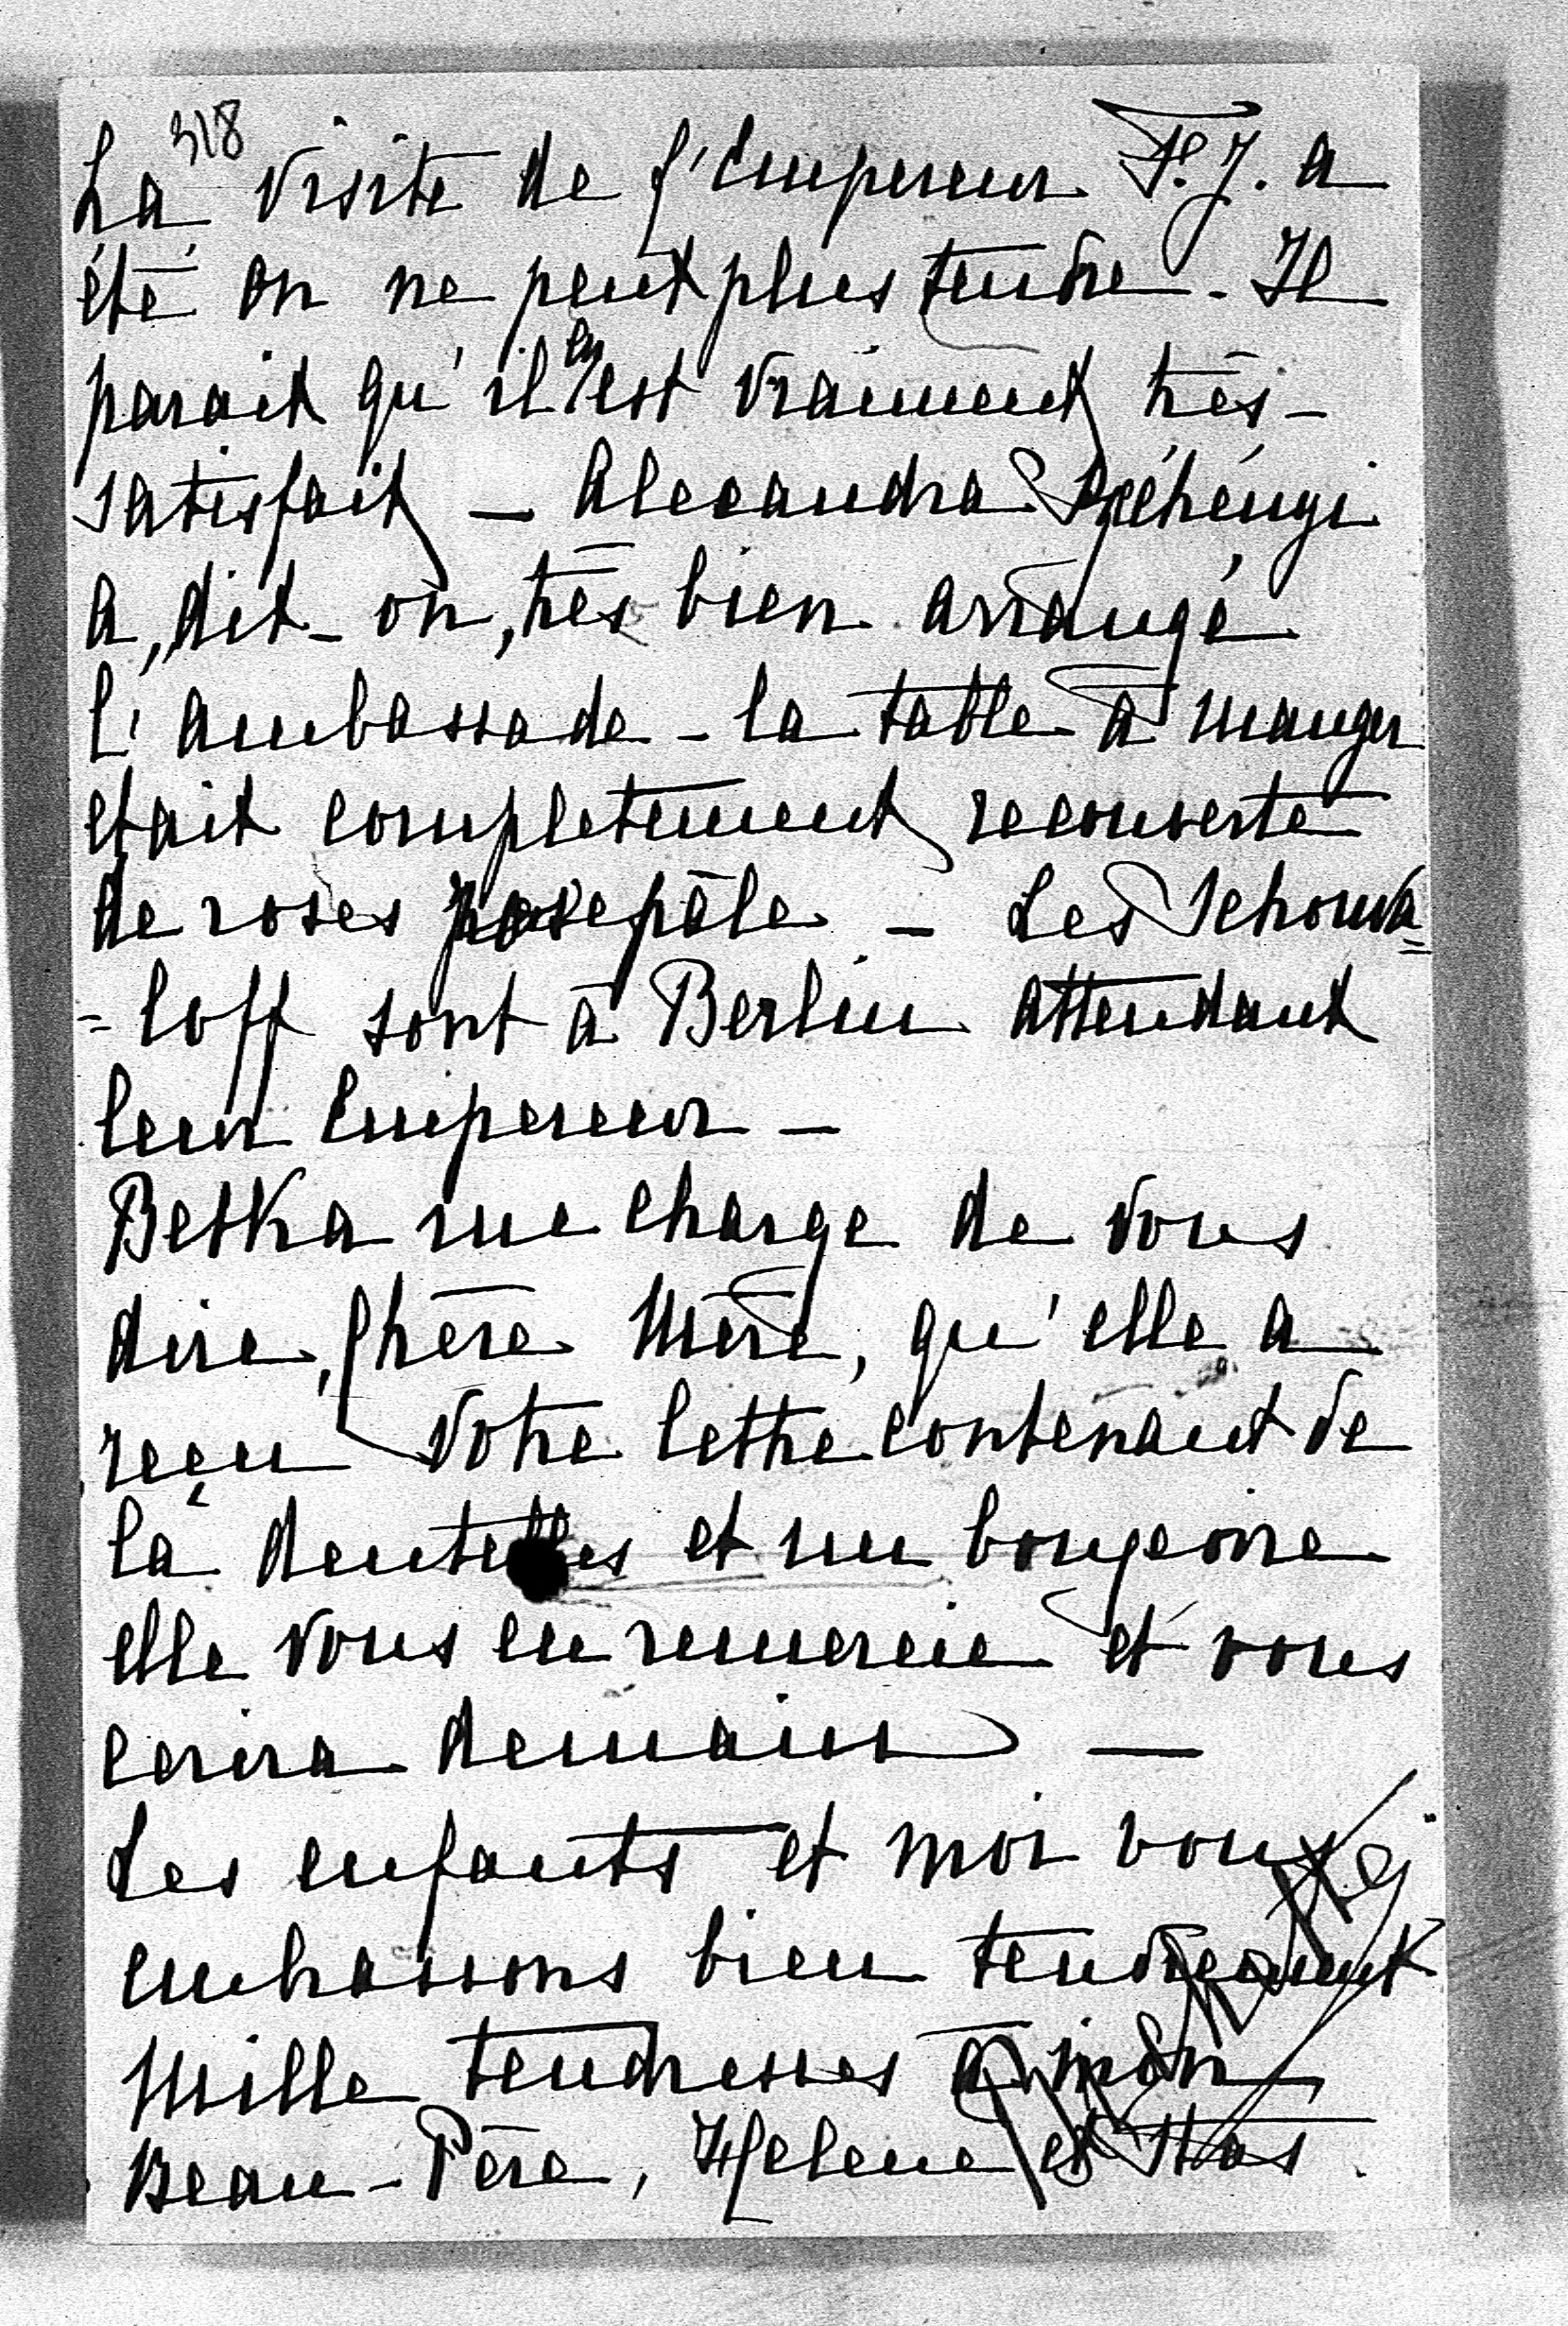 318
La visite de l'Empereur F. J. a
été on ne peut plus tendre - Il
parait qu'il en est vraiment très-
satisfait - Alexandra Széhényi
a, dit-on, très bien arrangé
l'ambassade - la table à manger
etait completement recouverte
de roses rose pâle - Les Schouva=
=loff sont à Berlin attendant
leur Empereur -
Betka me charge de vous
dire, chère Mère, qu'elle a
reçu votre lettre contenant de
la dentelles et un bougeoire
elle vous en remercie et vous
ecrira demain -
Les enfants et moi vous
embrassons bien tendrement
Mille tendresses à mon
Beau-Père, Helene et